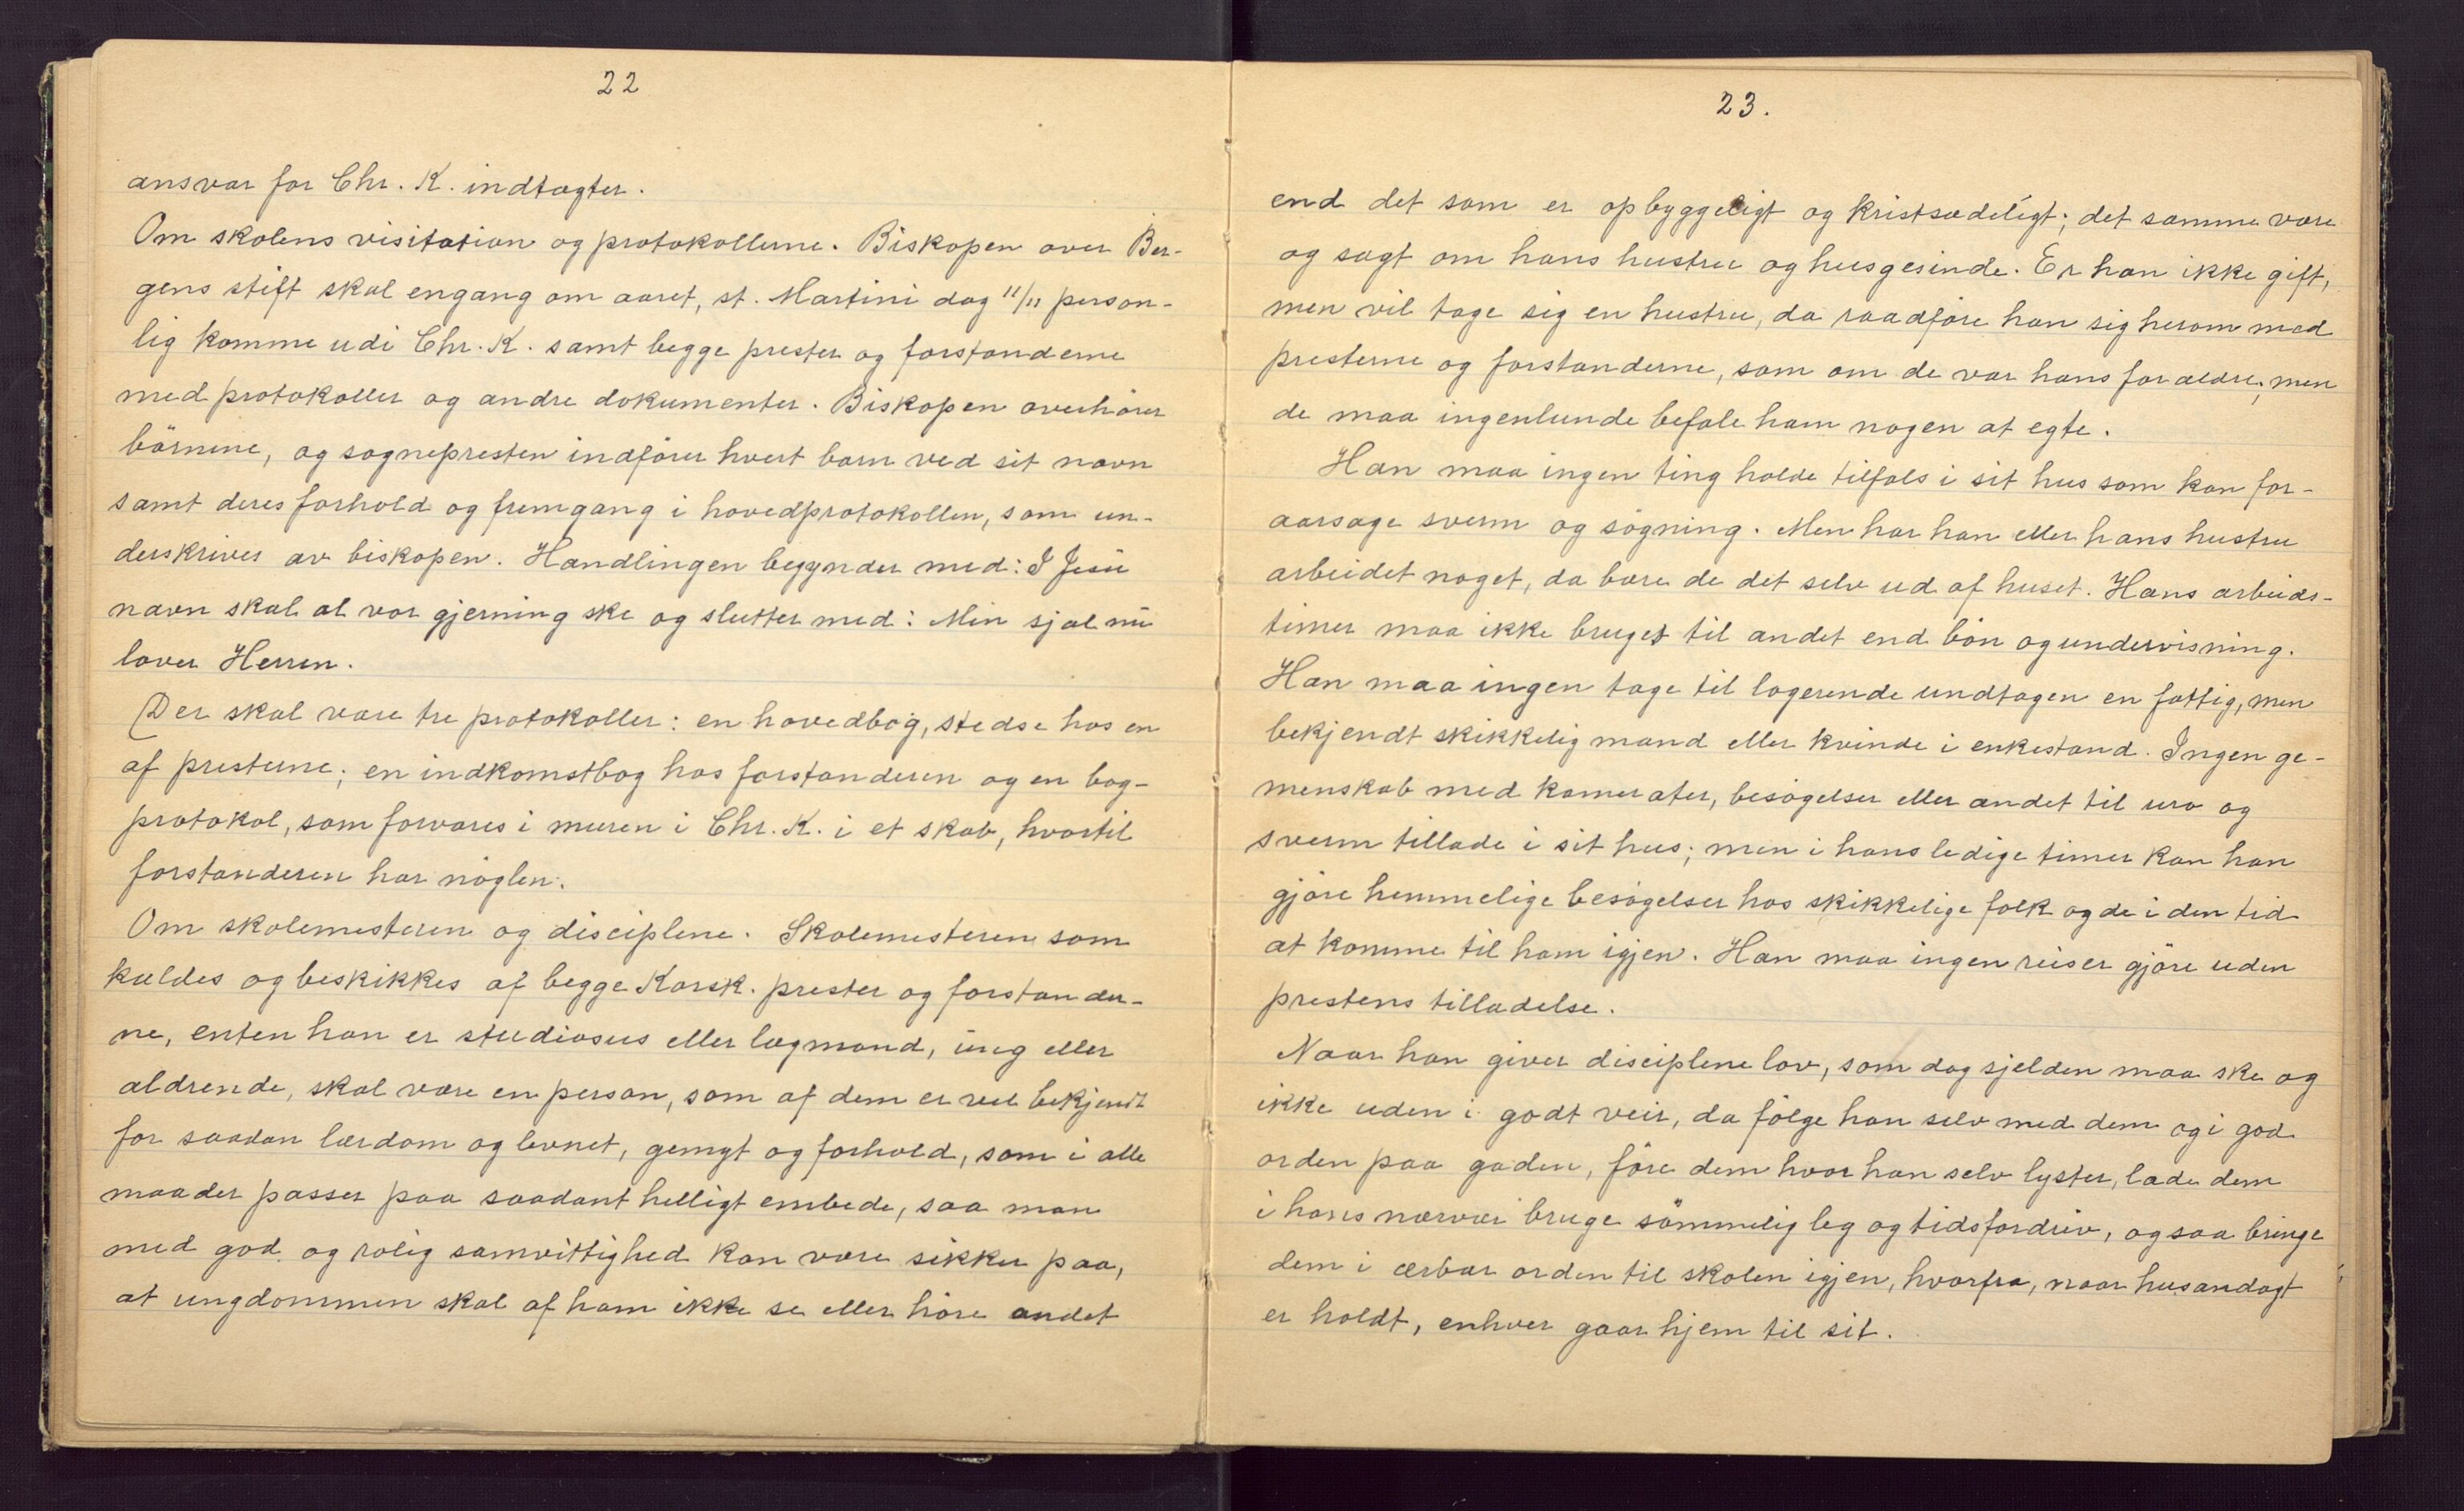 22
ansvar for Chr. K. indtægter.
Om skolens visitation og protokollerne. Biskopen over Ber-
gens stift skal engang om aaret, st. Martini dag 11/11 person-
lig komme udi Chr. K. samt begge prester og forstanderne
med protokoller og andre dokumenter. Biskopen overhörer
börnene, og sognepresten indförer hvert barn ved sit navn
samt deres forhold og fremgang i hovedprotokollen, som un-
derskrives av biskopen. Handlingen begynder med: I Jesu
navn skal al vor gjerning ske og slutter med: Min sjæl nu
lover Herren.
Der skal være tre protokoller: en hovedbog, stedse hos en
af presterne; en indkomstbog hos forstanderen og en bog-
protokol, som forvares i muren i Chr. K. i et skab, hvortil
forstanderen har nöglen.
Om skolemesteren og disciplene. Skolemesteren som
kaldes og beskikkes af begge Korsk. prester og forstander-
ne, enten han er studiosus eller lægmand, ung eller
aldrende, skal være en person, som af dem er vel bekjendt
for saadan lærdom og levnet, gemyt og forhold, som i alle
maader passer paa saadant helligt embede, saa man
med god og rolig samvittighed kan være sikker paa,
at ungdommen skal af ham ikke se eller höre andet
23.
end det som er opbyggeligt og kristsædeligt; det samme være
og sagt om hans hustru og husgesinde. Er han ikke gift,
men vil tage sig en hustru, da raadföre han sig herom med
presterne og forstanderne, som om de var hans forældre; men
de maa ingenlunde befale ham nogen at egte.
Han maa ingen ting holde tilfals i sit hus som kan for-
aarsage sverm og sögning. Men har han eller hans hustru
arbeidet noget, da bære de det selv ud af huset. Hans arbeids-
timer maa ikke bruges til andet end bön og undervisning.
Han maa ingen tage til logerende undtagen en fattig, men
bekjendt skikkelig mand eller kvinde i enkestand. Ingen ge-
menskab med kamerater, besögelser eller andet til uro og
sverm tillade i sit hus; men i hans ledige timer kan han
gjöre hemmelige besögelser hos skikkelige folk og de i den tid
at komme til ham igjen. Han maa ingen reiser gjöre uden
prestens tilladelse.
Naar han giver disciplene lov, som dog sjelden maa ske og
ikke uden i godt veir, da fölge han selv med dem og i god
orden paa gaden, före dem hvor han selv lyster, lade dem
i hans nærvær bruge sömmelig leg og tidsfordriv, og saa bringe
dem i ærbar orden til skolen igjen, hvorfra, naar husandagt
er holdt, enhver gaar hjem til sit.